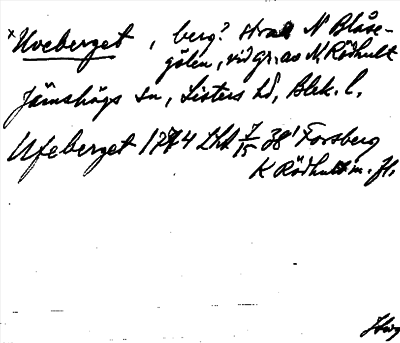 x Uveberget, berg? strax N Blåse-
gölen, vid gr. av N. Rödhult
Jämshögs sn, Listers hd, Blek. l.
Ufeberget 1774 LMA 7/15 38' Forsberg
K Rödhult m. fl.